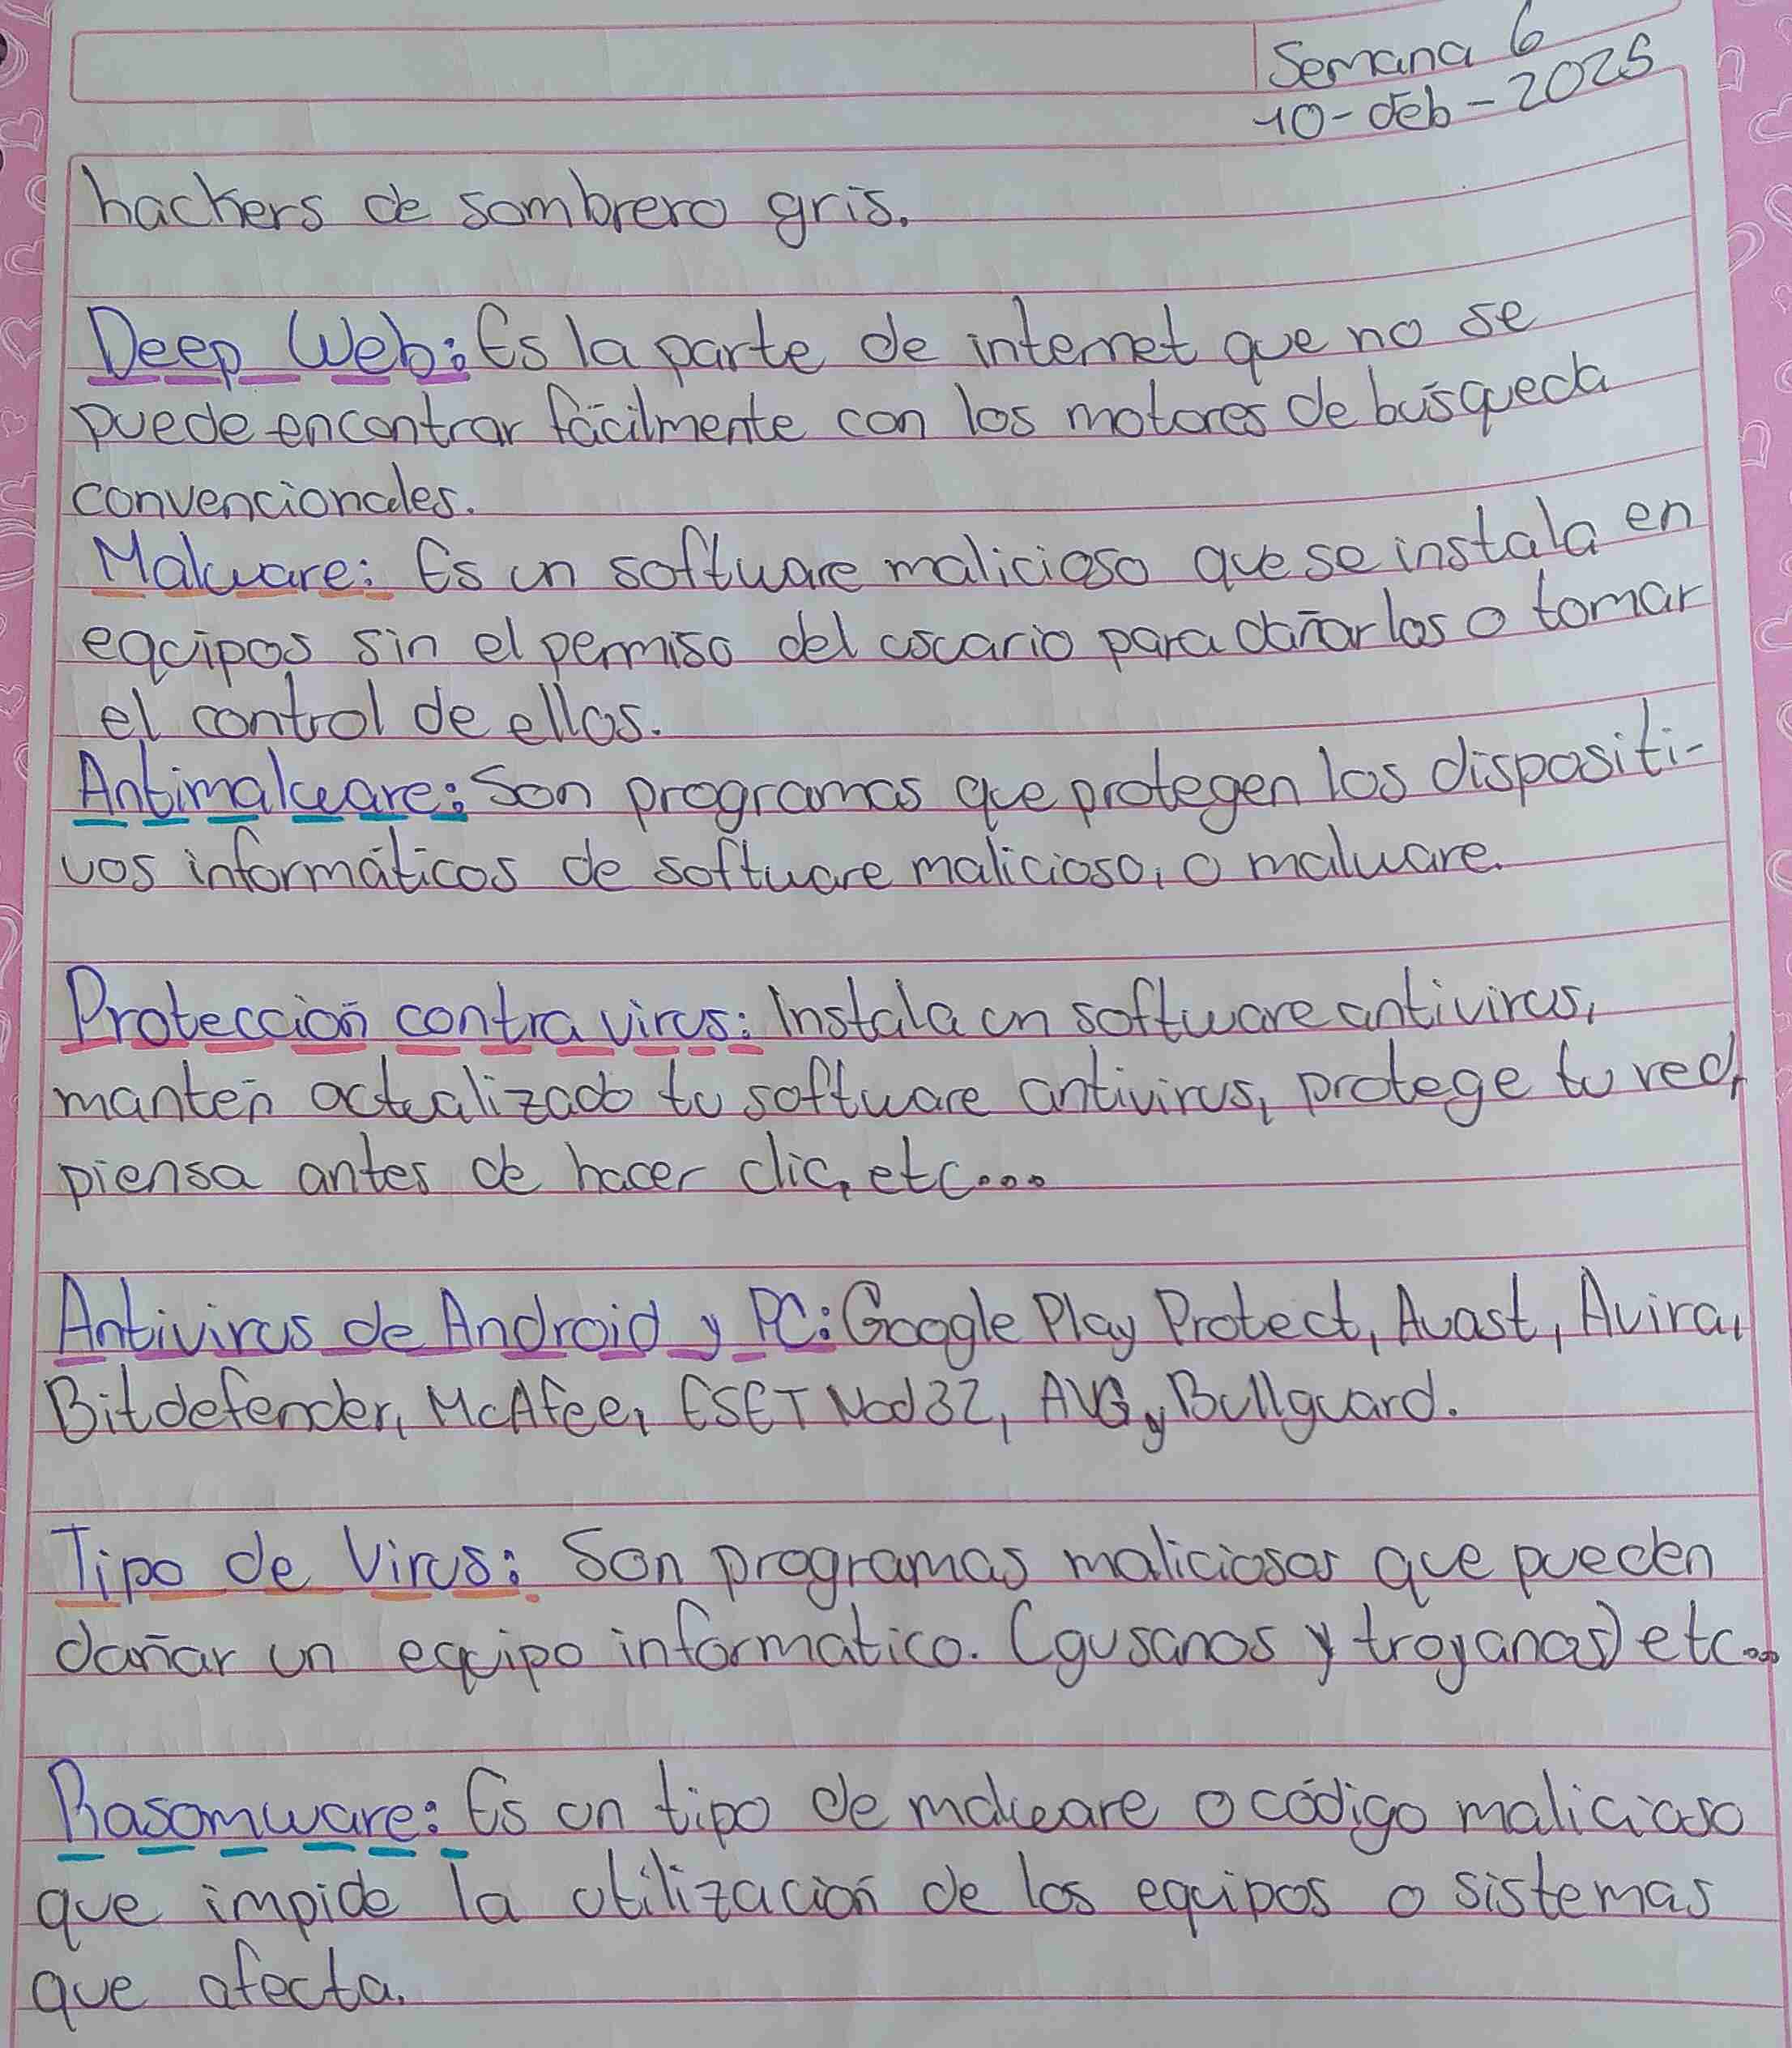 Semana 6
10-feb-2025
hackers de sombrero gris.
Deep Web: Es la parte de internet que no se
puede encontrar fácilmente con los motores de búsqueda
convencionales.
Malware: Es un software malicioso que se instala en
equipos sin el permiso del usuario para dañarlos o tomar
el control de ellos.
Antimalware: Son programas que protegen los dispositi-
vos informáticos de software malicioso, o malware.
Protección contra virus: Instala un software antivirus,
mantén actualizado tu software antivirus, protege tu red,
piensa antes de hacer clic, etc...
Antivirus de Android y PC: Google Play Protect, Avast, Avira,
Bitdefender, McAfee, ESET Nod32, AVG y Bullguard.
Tipo de Virus: Son programas maliciosos que pueden
dañar un equipo informatico. (gusanos y troyanos) etc...
Rasomware: Es un tipo de malware o código malicioso
que impide la utilización de los equipos o sistemas
que afecta.